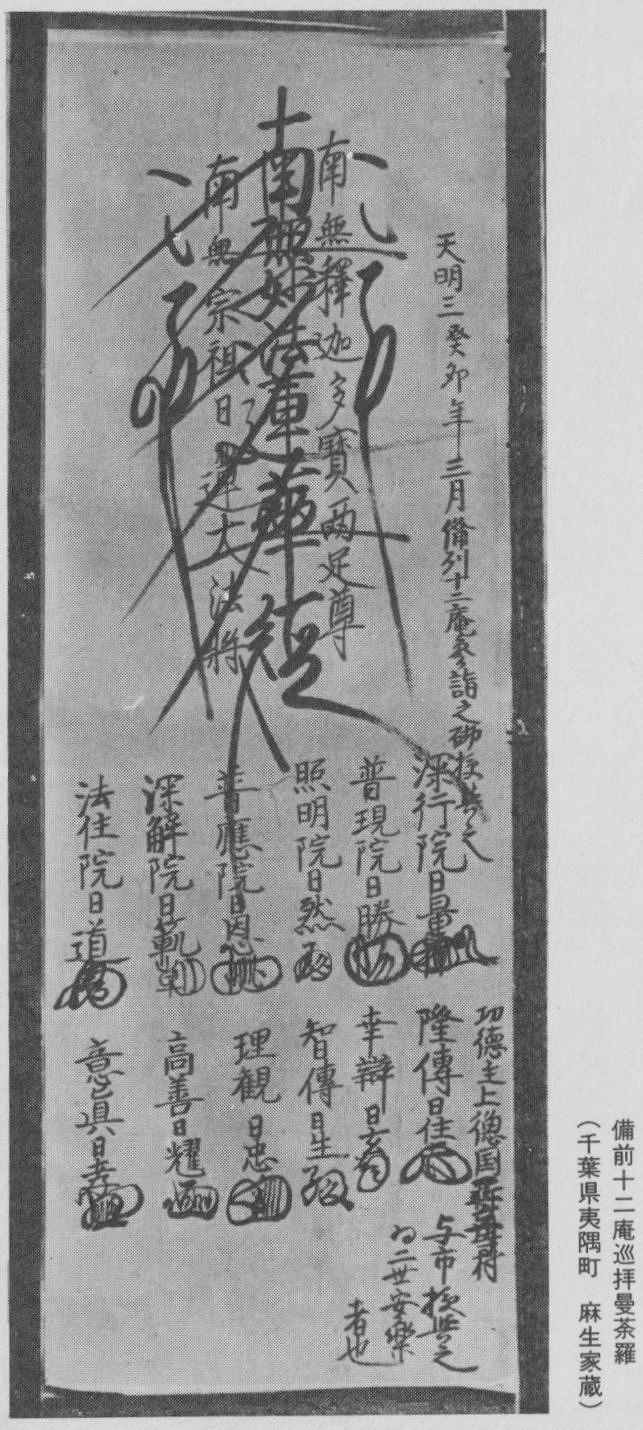 備前十二庵巡拝曼荼羅
(千葉県夷隅町　麻生家蔵)
天明三癸卯年三月備列十二庵参詣之砌授与之
南無釋迦多寶両足尊
南無妙法蓮華経
南無宗祖日蓮大法將
深行院日量
普現院日勝
照明院日然
普應院日恩
深解院日
法住院日道
功德主上德国
隆傳日住
幸辯日
智傳日生
理観日忠
高善日耀
意真日孝
与市授与之
為二世安樂
者也